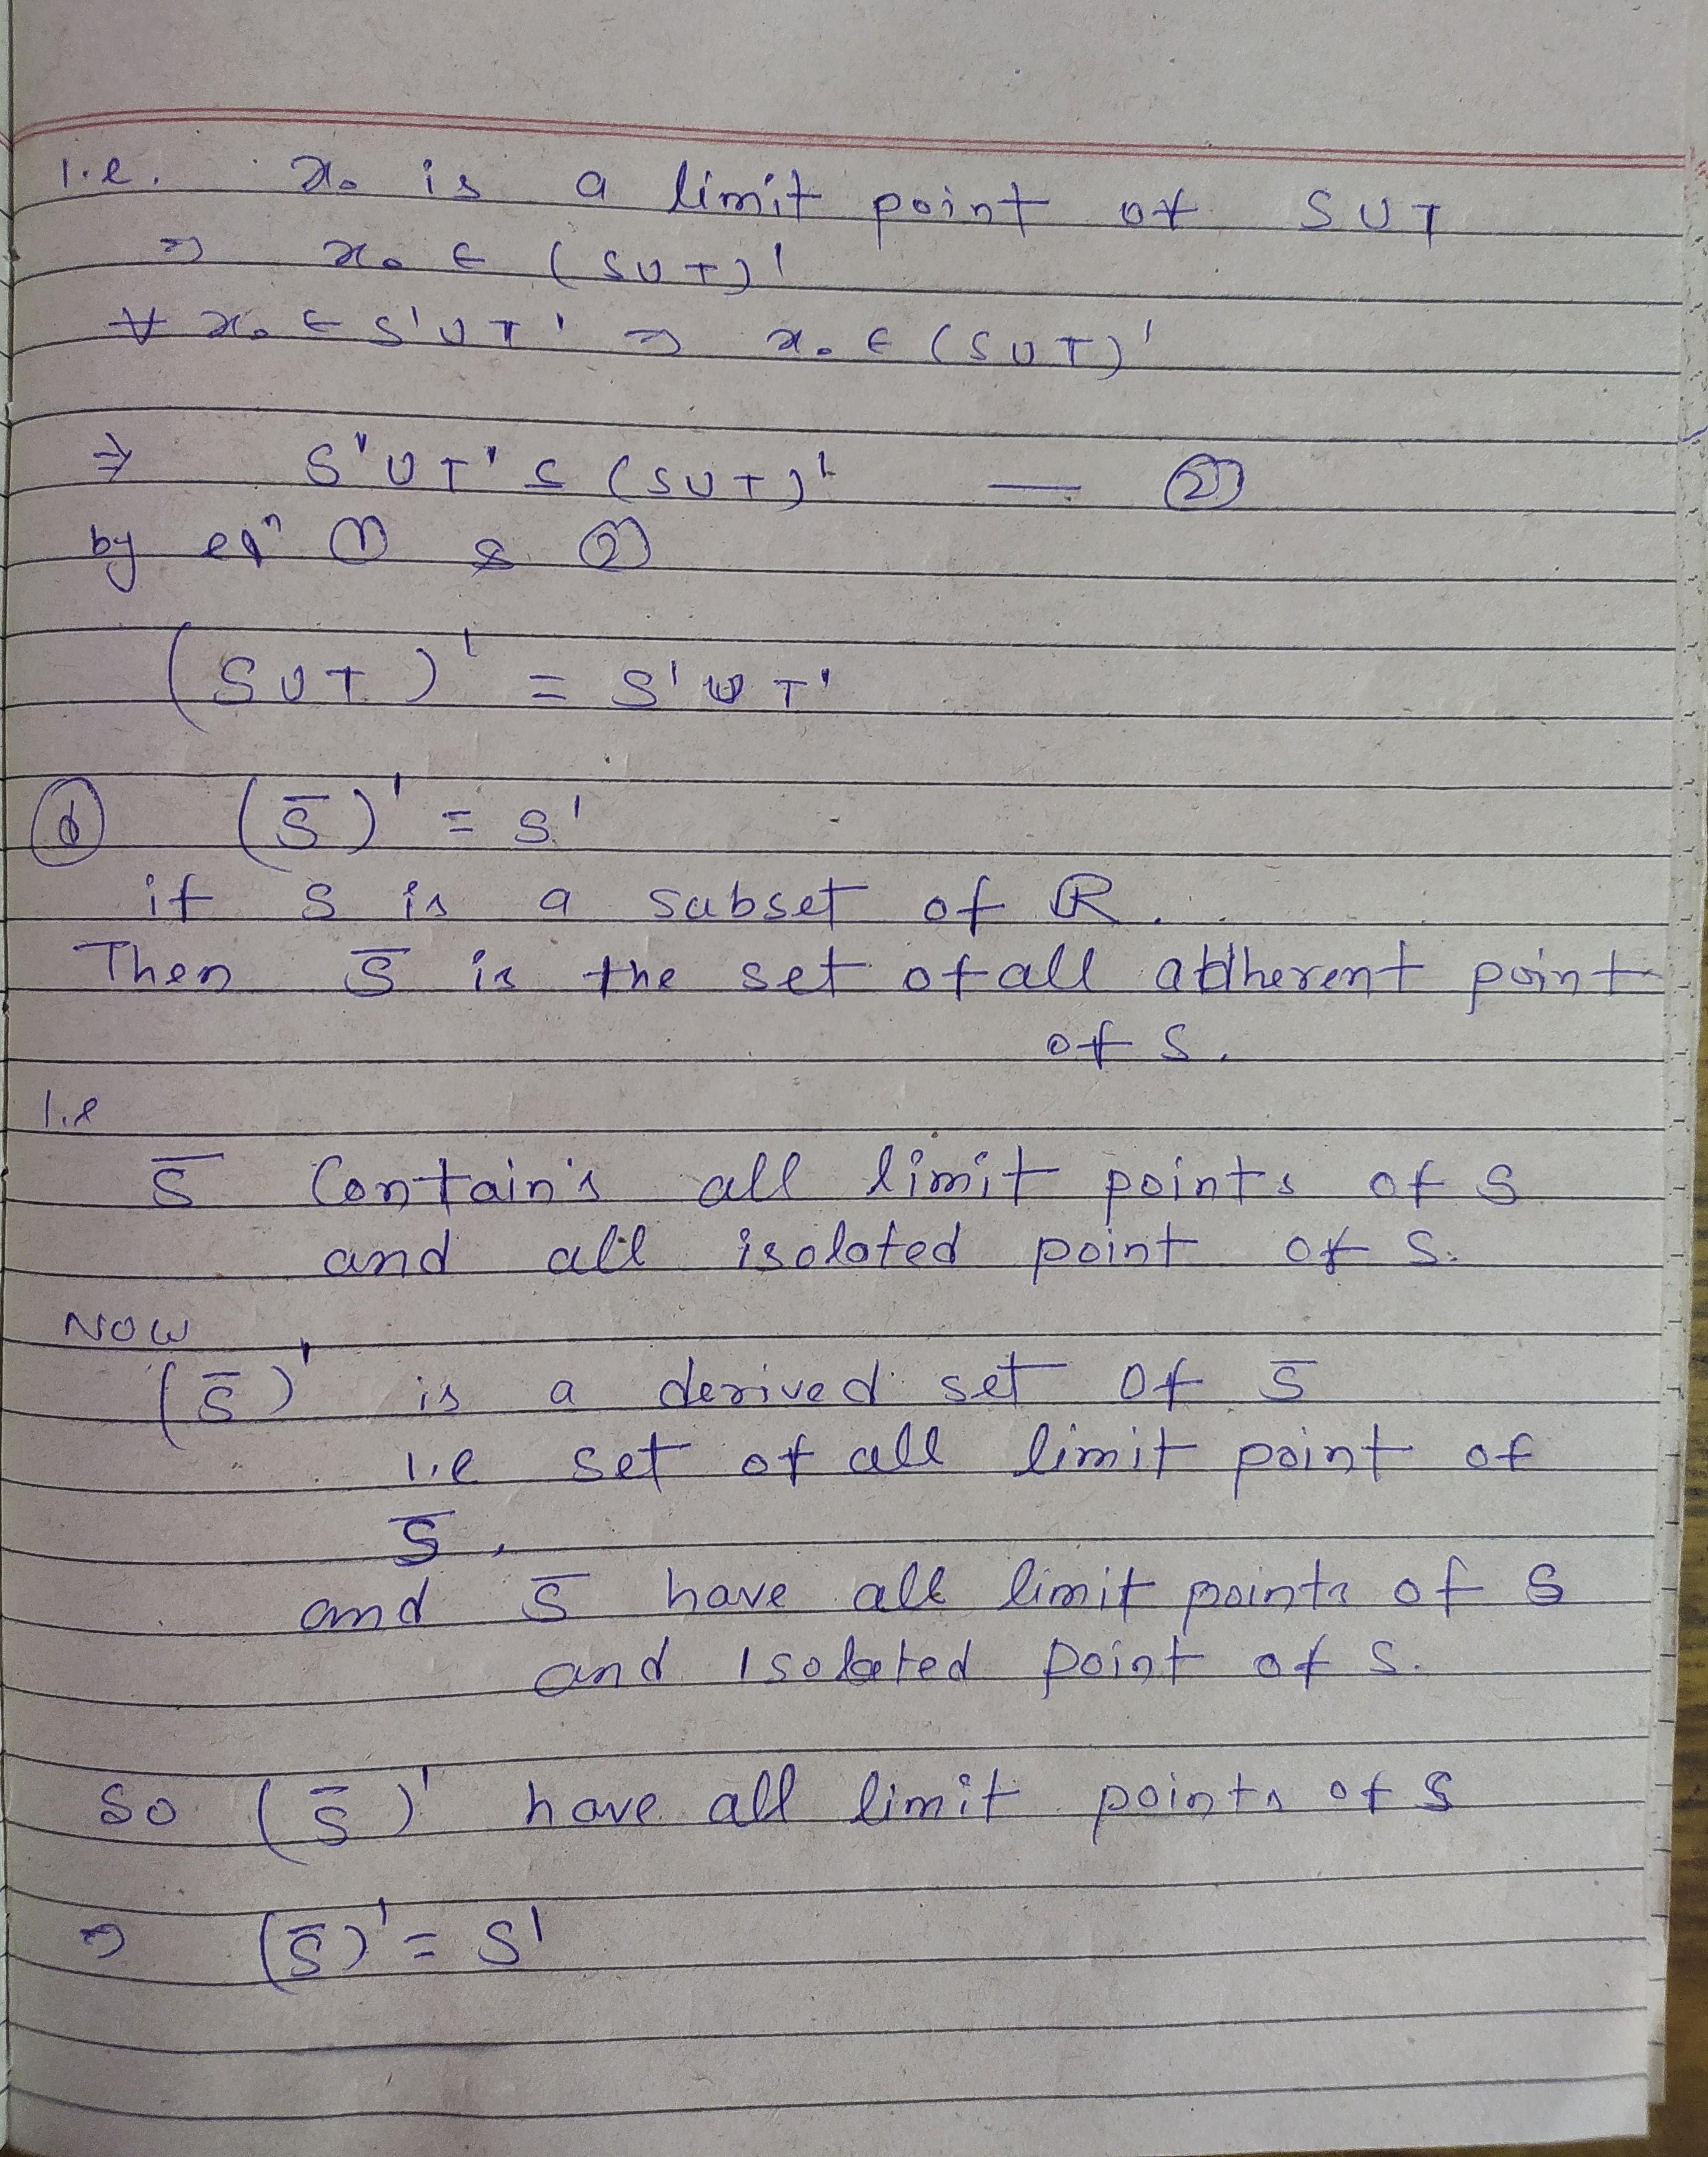 I.e. x₀ is a limit point of S∪T
⇒ x₀ ∈ (S∪T)'
∀ x₀ ∈ S'∪T' ⇒ x₀ ∈ (S∪T)'
⇒ S'∪T' ⊆ (S∪T)' — ②
by eqⁿ ① & ②
(S∪T)' = S'∪T'
ⓓ (S̅)' = S'
if S is a subset of ℝ.
Then S̅ is the set of all adherent point
of S.
I.e
S̅ Contain's all limit points of S
and all isolated point of S.
NOW
(S̅)' is a derived set Of S̅
I.e set of all limit point of
S̅,
and S̅ have all limit points of S
and Isolated point of S.
So (S̅)' have all limit points of S
⇒ (S̅)' = S'